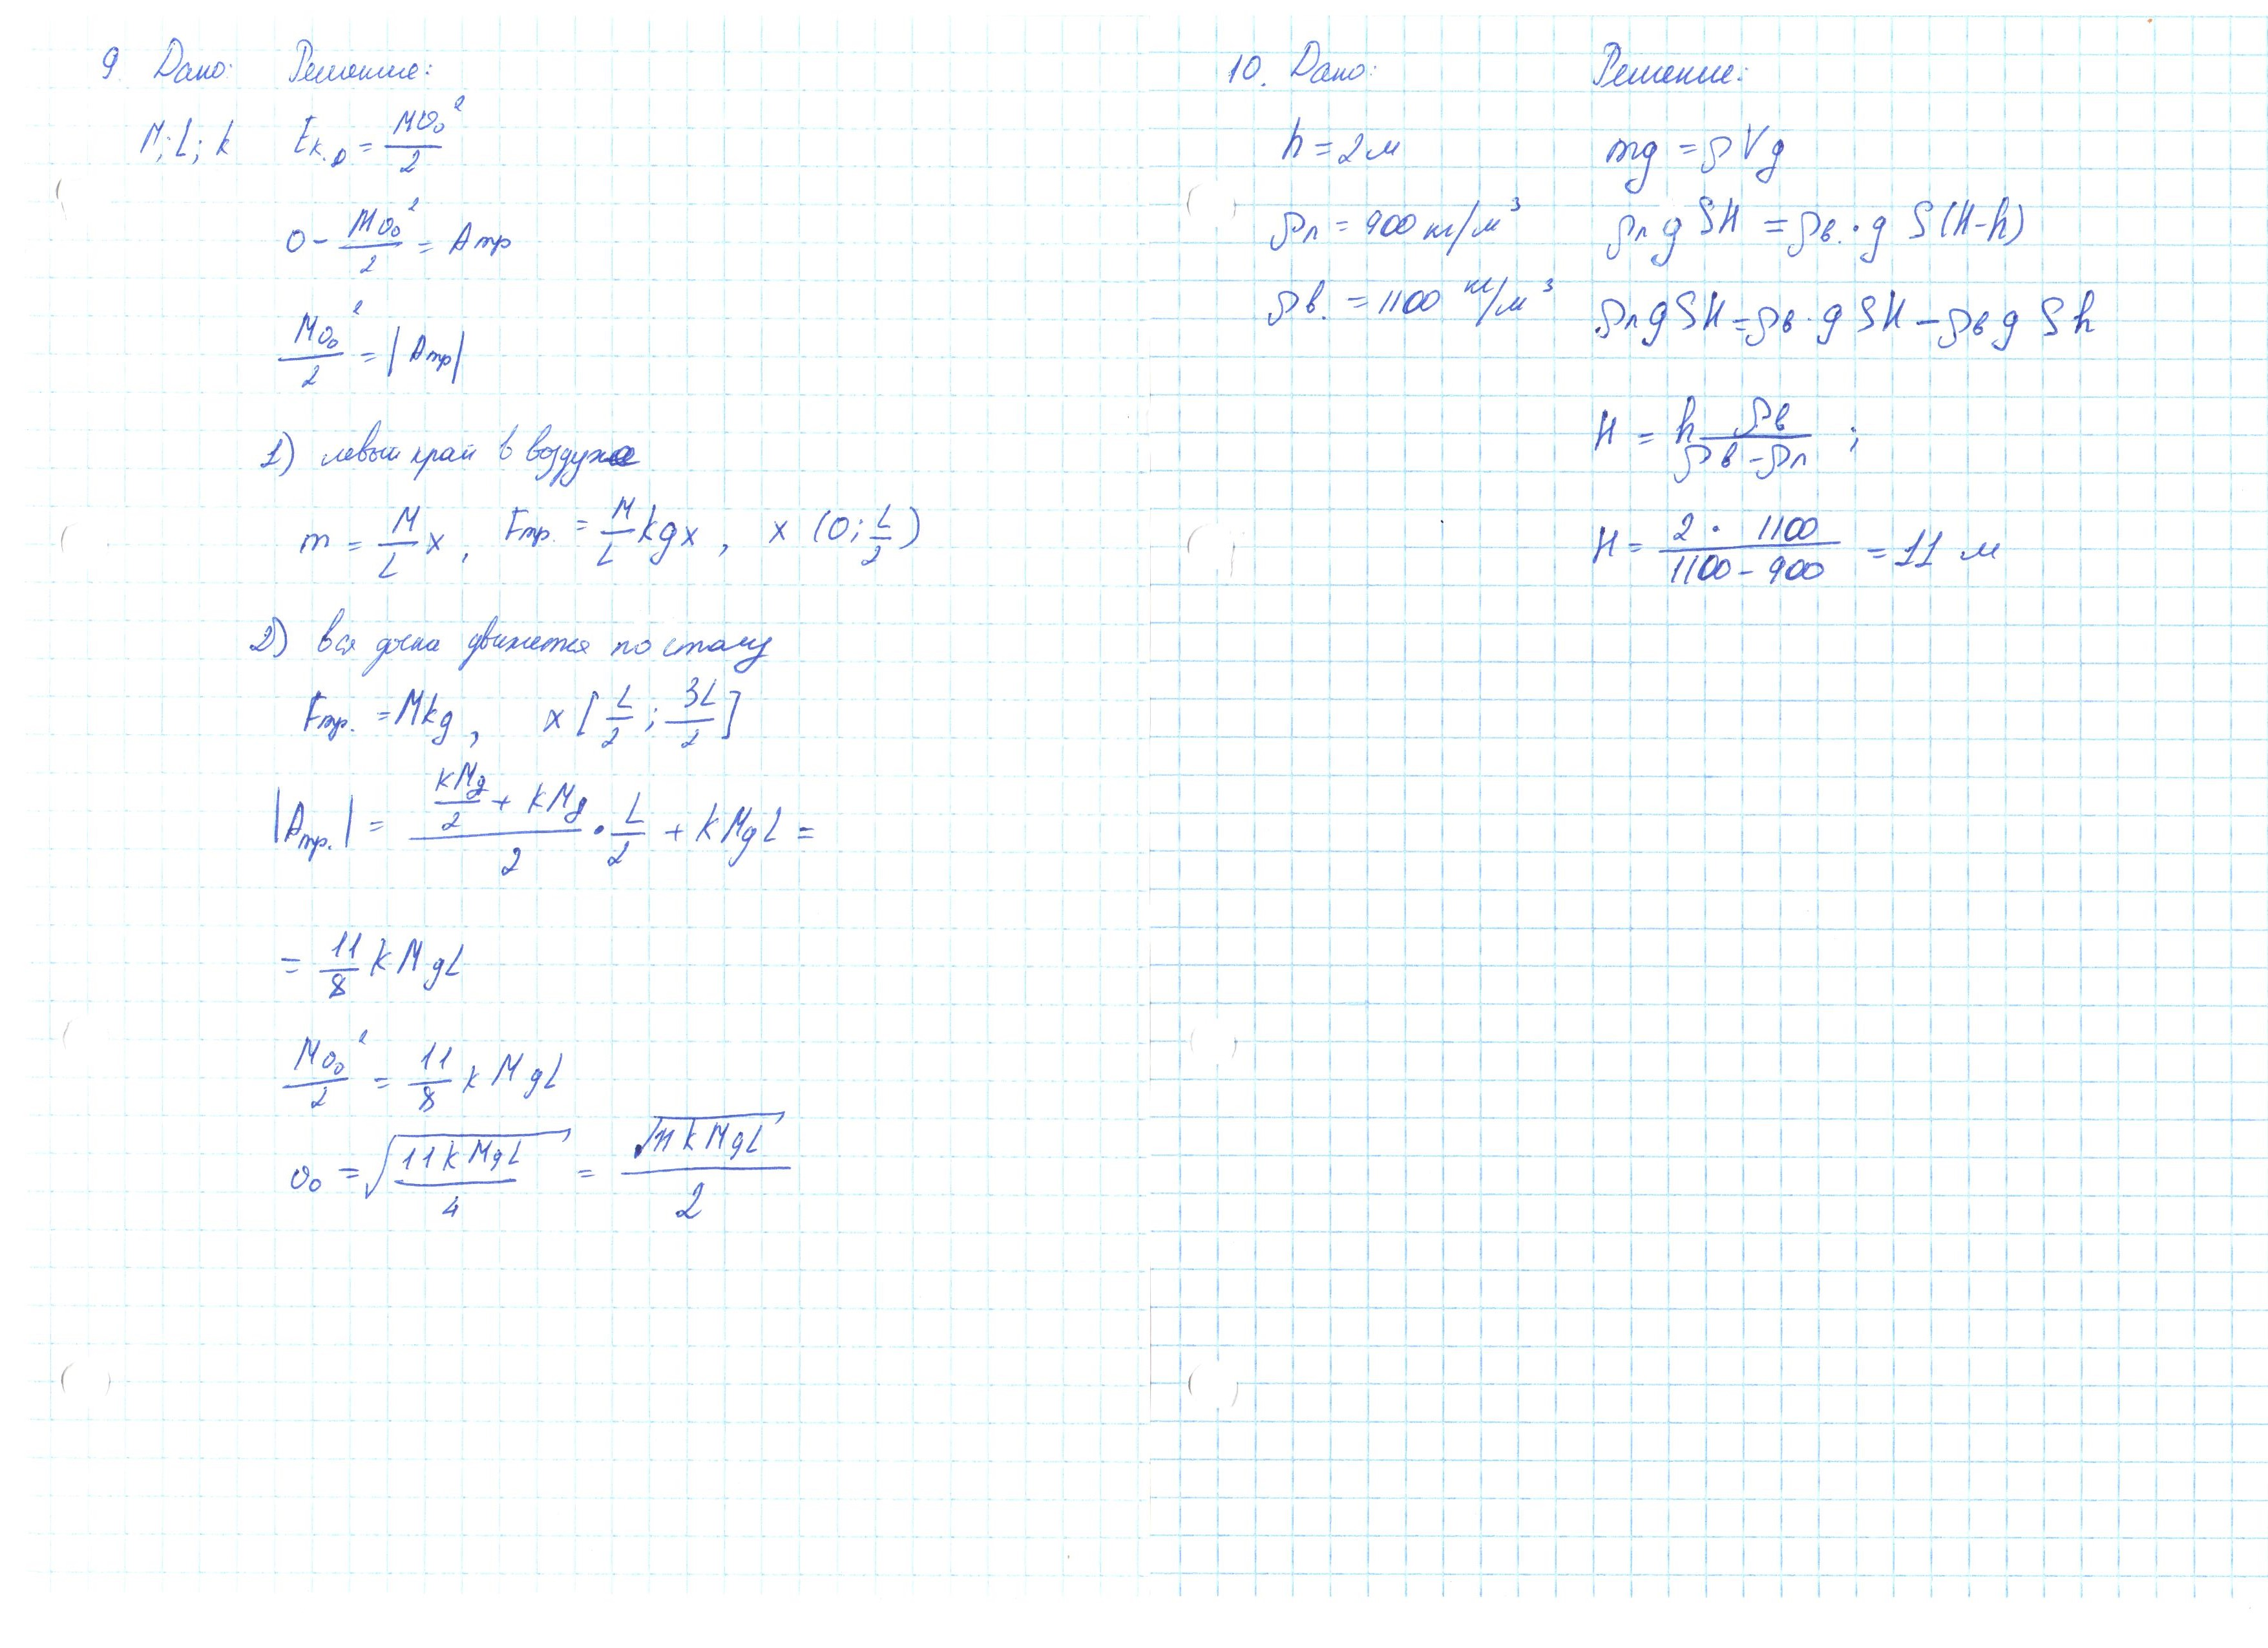 9. Дано: Решение:
M; L; k Eк.0 = Mυ₀²/2
0 - Mυ₀²/2 = Aтр
Mυ₀²/2 = |Aтр|
1) левый край в воздухе
m = M/L x, Fтр. = M/L kgx, x (0; L/2)
2) вся доска движется по столу
Fтр. = Mkg, x [L/2; 3L/2]
|Aтр.| = (kMg/2 + kMg)/2 · L/2 + kMgL =
= 11/8 kMgL
Mυ₀²/2 = 11/8 kMgL
υ₀ = √(11kMgL/4) = √(11kMgL)/2
10. Дано: Решение:
h = 2 м mg = ρVg
ρл = 900 кг/м³ ρл g SH = ρв. · g S(H-h)
ρв. = 1100 кг/м³ ρл g SH = ρв · g SH - ρв g Sh
H = h ρв/(ρв - ρл) ;
H = (2 · 1100)/(1100 - 900) = 11 м